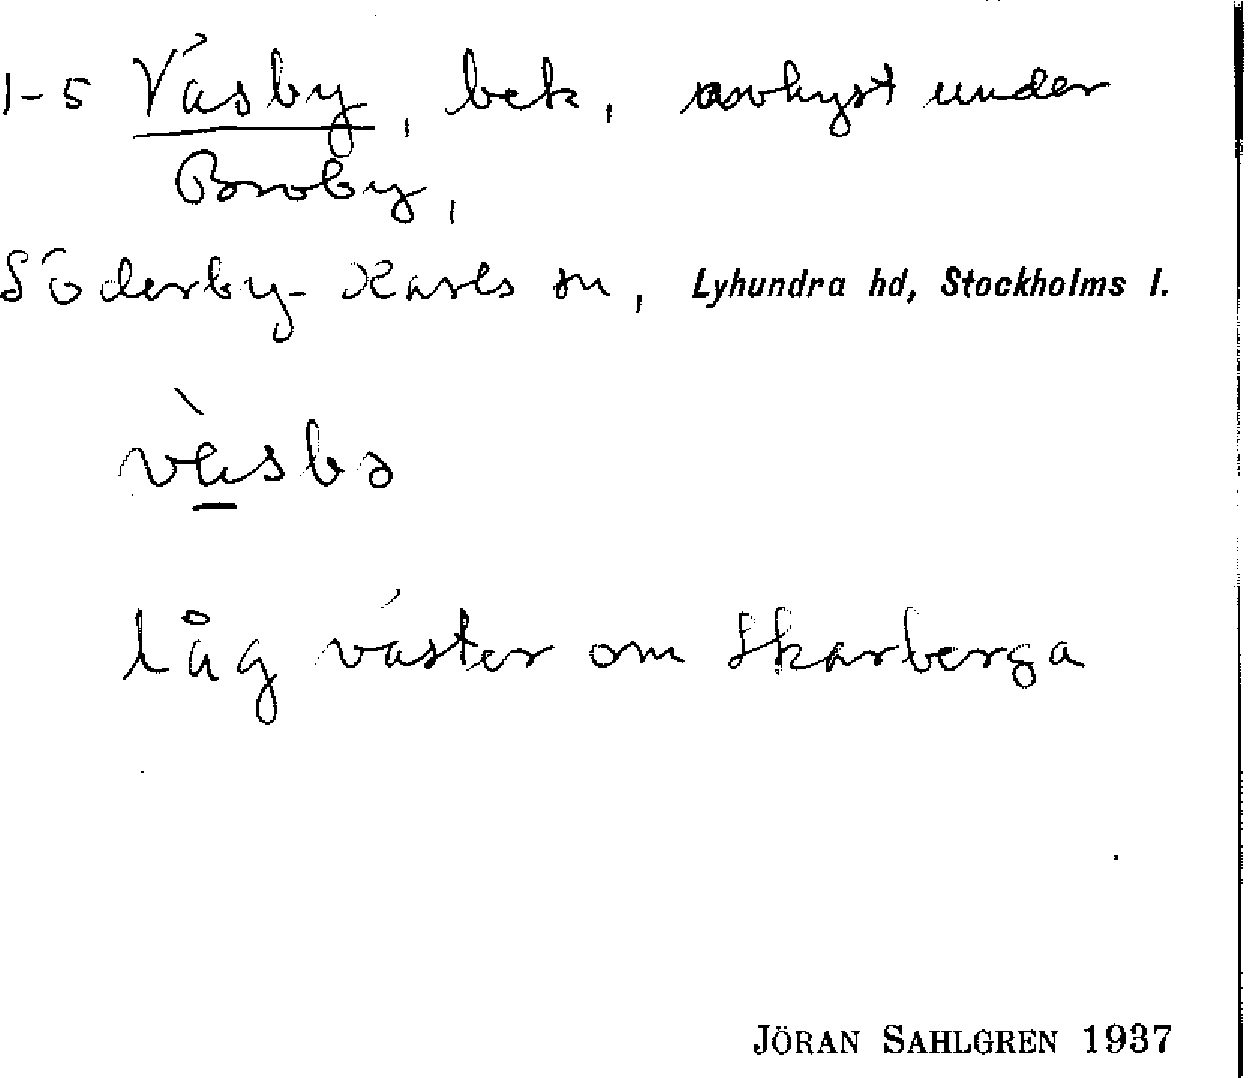 1-5 Väsby, bek, avhyst under
Broby,
Söderby-Karls sn, Lyhundra hd, Stockholms l.
vä̀sbə
låg väster om Skarberga
JÖRAN SAHLGREN 1937